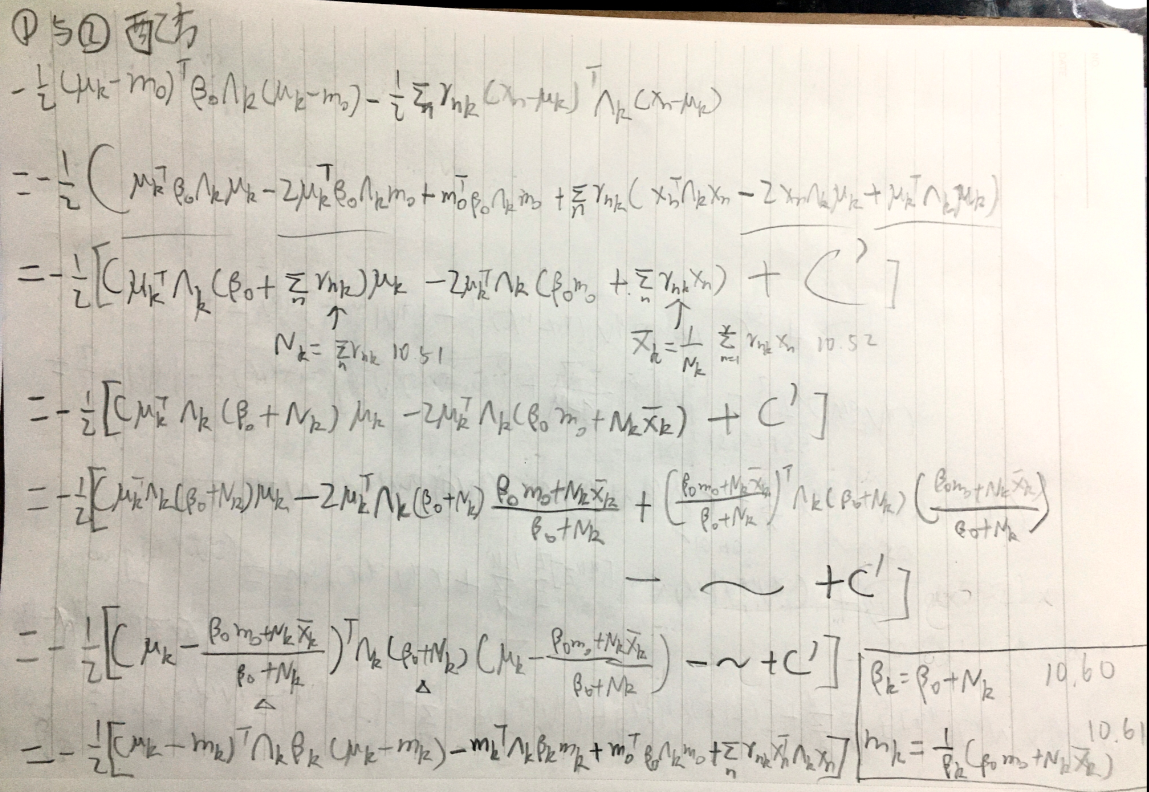 ① 与 ② 配方
-½(μₖ-m₀)ᵀβ₀Λₖ(μₖ-m₀) - ½ Σₙ rₙₖ(xₙ-μₖ)ᵀΛₖ(xₙ-μₖ)
= -½( μₖᵀβ₀Λₖμₖ - 2μₖᵀβ₀Λₖm₀ + m₀ᵀβ₀Λₖm₀ + Σₙ rₙₖ( xₙᵀΛₖxₙ - 2xₙΛₖμₖ + μₖᵀΛₖμₖ)
= -½[(μₖᵀΛₖ(β₀ + Σₙ rₙₖ)μₖ - 2μₖᵀΛₖ(β₀m₀ + Σₙ rₙₖxₙ) + C']
↑ ↑
Nₖ = Σₙ rₙₖ 10.51 x̄ₖ = 1/Nₖ Σₙ₌₁ᴺ rₙₖ xₙ 10.52
= -½[(μₖᵀ Λₖ(β₀ + Nₖ) μₖ - 2μₖᵀ Λₖ(β₀ m₀ + Nₖx̄ₖ) + C']
= -½[(μₖᵀΛₖ(β₀+Nₖ)μₖ - 2μₖᵀΛₖ(β₀+Nₖ) (β₀m₀+Nₖx̄ₖ)/(β₀+Nₖ) + ((β₀m₀+Nₖx̄ₖ)/(β₀+Nₖ))ᵀ Λₖ(β₀+Nₖ) ((β₀m₀+Nₖx̄ₖ)/(β₀+Nₖ))
- ~ + C']
= -½[(μₖ - (β₀m₀+Nₖx̄ₖ)/(β₀+Nₖ))ᵀΛₖ(β₀+Nₖ)(μₖ - (β₀m₀+Nₖx̄ₖ)/(β₀+Nₖ)) - ~ + C']
△ △
= -½[(μₖ-mₖ)ᵀΛₖβₖ(μₖ-mₖ) - mₖᵀΛₖβₖmₖ + m₀ᵀβ₀Λₖm₀ + Σₙ rₙₖxₙᵀΛₖxₙ]
βₖ = β₀ + Nₖ 10.60
mₖ = 1/βₖ (β₀m₀ + Nₖx̄ₖ) 10.61